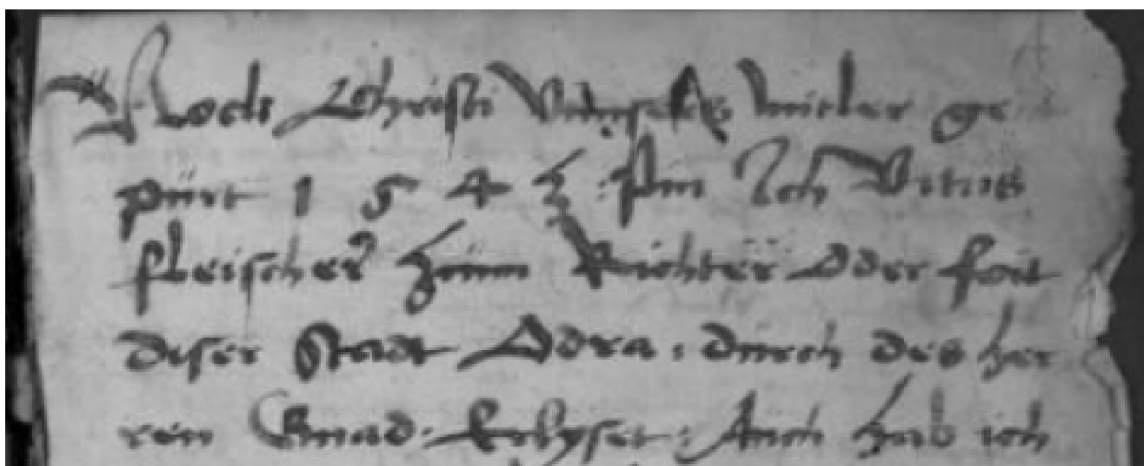 Noch Christi Unnsers mitler ge
pürt 1 5 4 3 : Pin Ich Vitus
fleischer Zum Richter Oder foit
diser Stadt Odra : durch des her
ren Gnad : Auch Hab ich